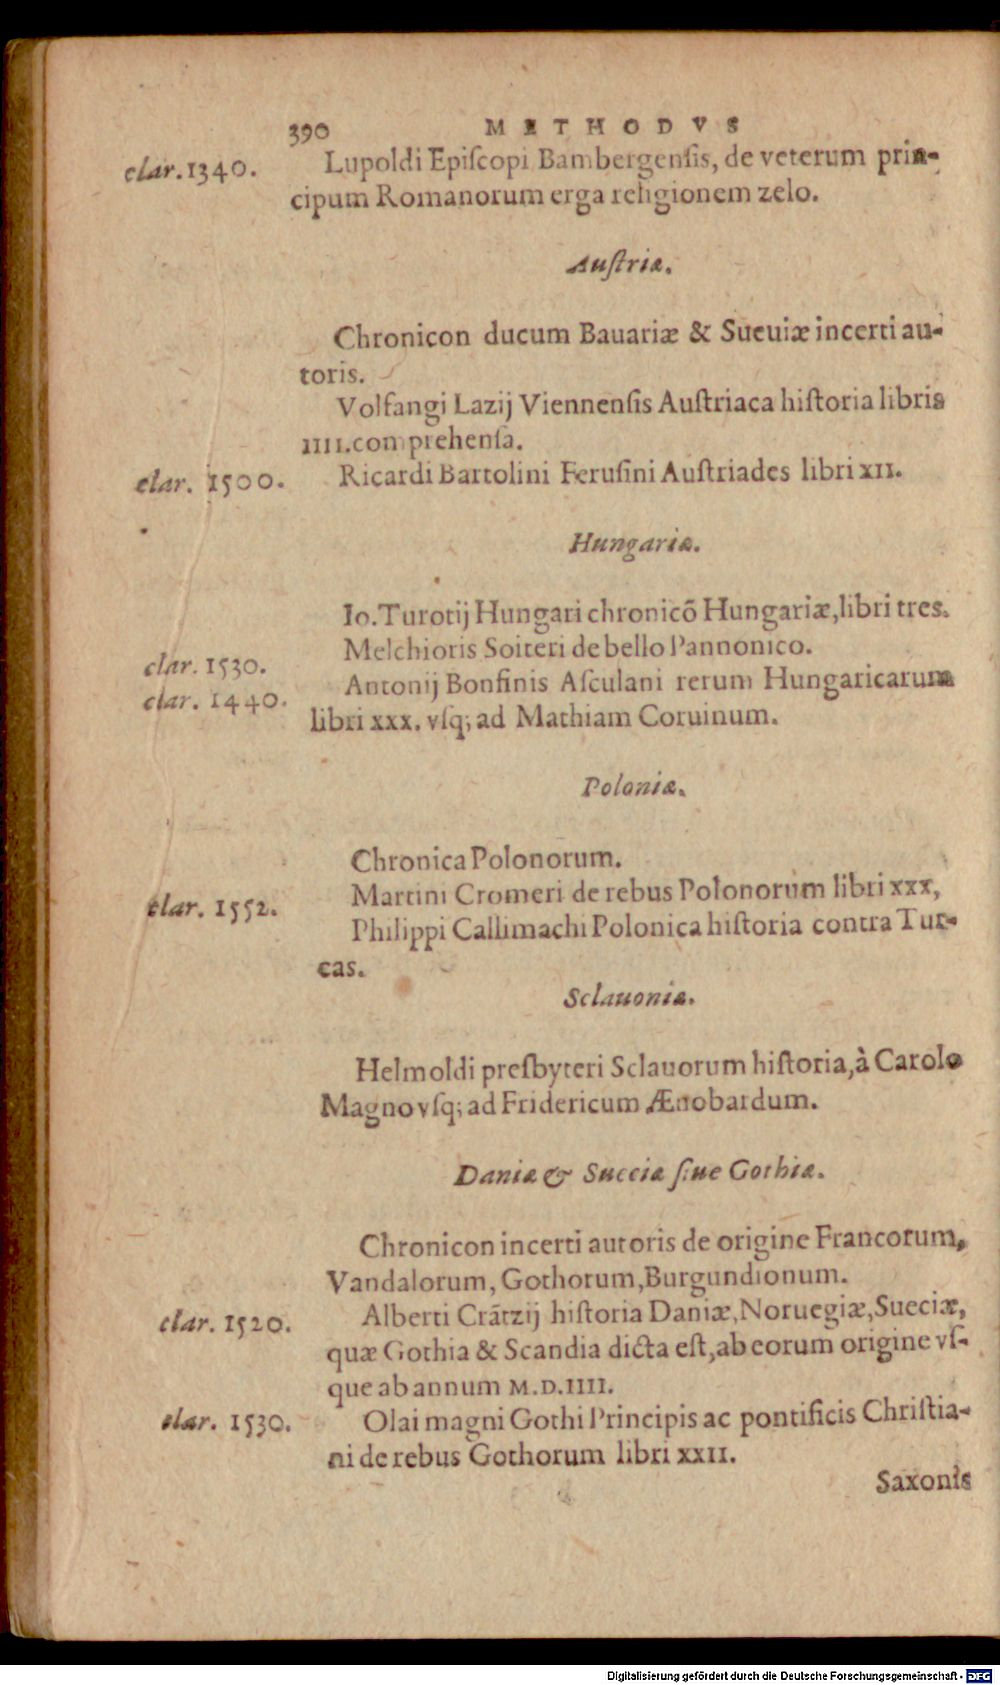 390 METHODVS
clar. 1340. Lupoldi Episcopi Bambergensis, de veterum prin-
cipum Romanorum erga religionem zelo.
Austriæ.
Chronicon ducum Bauariæ & Sueuiæ incerti au-
toris.
Volfangi Lazij Viennensis Austriaca historia libris
IIII. comprehensa.
clar. 1500. Ricardi Bartolini Perusini Austriades libri XII.
Hungariæ.
Io. Turotij Hungari chronicõ Hungariæ, libri tres.
clar. 1530. Melchioris Soiteri de bello Pannonico.
clar. 1440. Antonij Bonfinis Asculani rerum Hungaricarum
libri xxx. vsq; ad Mathiam Coruinum.
Poloniæ.
Chronica Polonorum.
clar. 1552. Martini Cromeri de rebus Polonorum libri xxx,
Philippi Callimachi Polonica historia contra Tur-
cas.
Sclauoniæ.
Helmoldi presbyteri Sclauorum historia, à Carolo
Magno vsq; ad Fridericum Ænobardum.
Daniæ & Sueciæ siue Gothiæ.
Chronicon incerti autoris de origine Francorum,
Vandalorum, Gothorum, Burgundionum.
clar. 1520. Alberti Crãtzij historia Daniæ, Noruegiæ, Sueciæ,
quæ Gothia & Scandia dicta est, ab eorum origine vs-
que ab annum M.D.IIII.
clar. 1530. Olai magni Gothi Principis ac pontificis Christia-
ni de rebus Gothorum libri XXII.
Saxonis
Digitalisierung gefördert durch die Deutsche Forschungsgemeinschaft - DFG